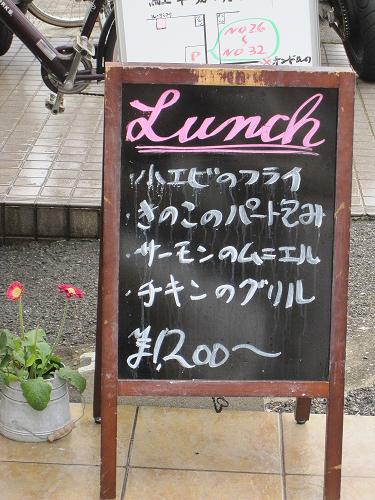 No26
〜
No32
P
Lunch
・小エビのフライ
・きのこのパートそみ
・サーモンのムニエル
・チキンのグリル
¥1,200〜